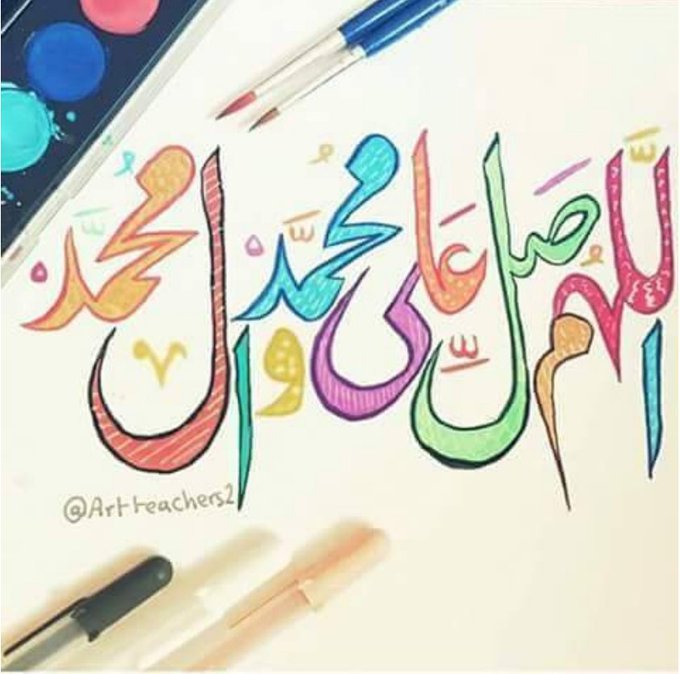 اللّٰهُمَّ صَلِّ عَلى مُحَمَّدٍ وال مُحَمَّد
@Artteachers2